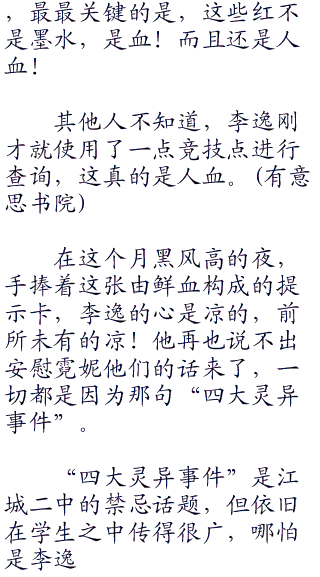 ，最最关键的是，这些红不
是墨水，是血！而且还是人
血！
其他人不知道，李逸刚
才就使用了一点竞技点进行
查询，这真的是人血。(有意
思书院)
在这个月黑风高的夜，
手捧着这张由鲜血构成的提
示卡，李逸的心是凉的，前
所未有的凉！他再也说不出
安慰霓妮他们的话来了，一
切都是因为那句“四大灵异
事件”。
“四大灵异事件”是江
城二中的禁忌话题，但依旧
在学生之中传得很广，哪怕
是李逸